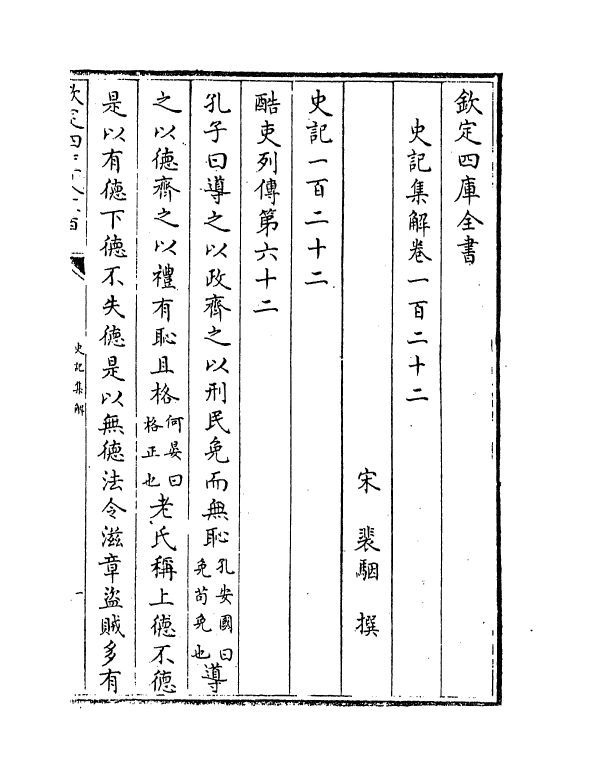 欽定四庫全書
史記集解卷一百二十二
宋 裴駰 撰
史記一百二十二
酷吏列傳第六十二
孔子曰導之以政齊之以刑民免而無恥孔安國曰免苟免也導
之以徳齊之以禮有恥且格何晏曰格正也老氏稱上徳不徳
是以有徳下徳不失徳是以無徳法令滋章盜賊多有
史記集解
一